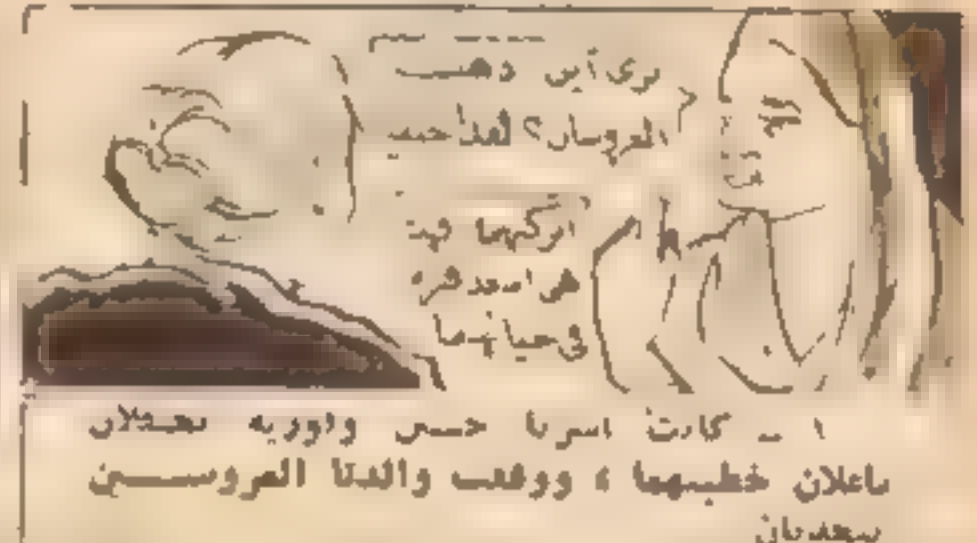 ترى أين ذهب
العروسان؟ لقد
اتركيها فهذه
هى أسعد فترة
فى حياتهما
١ ـ كانت أسرتا حسن ونورية تحتفلان
باعلان خطبتهما ، ووقفت والدتا العروســـين
تتحدثان